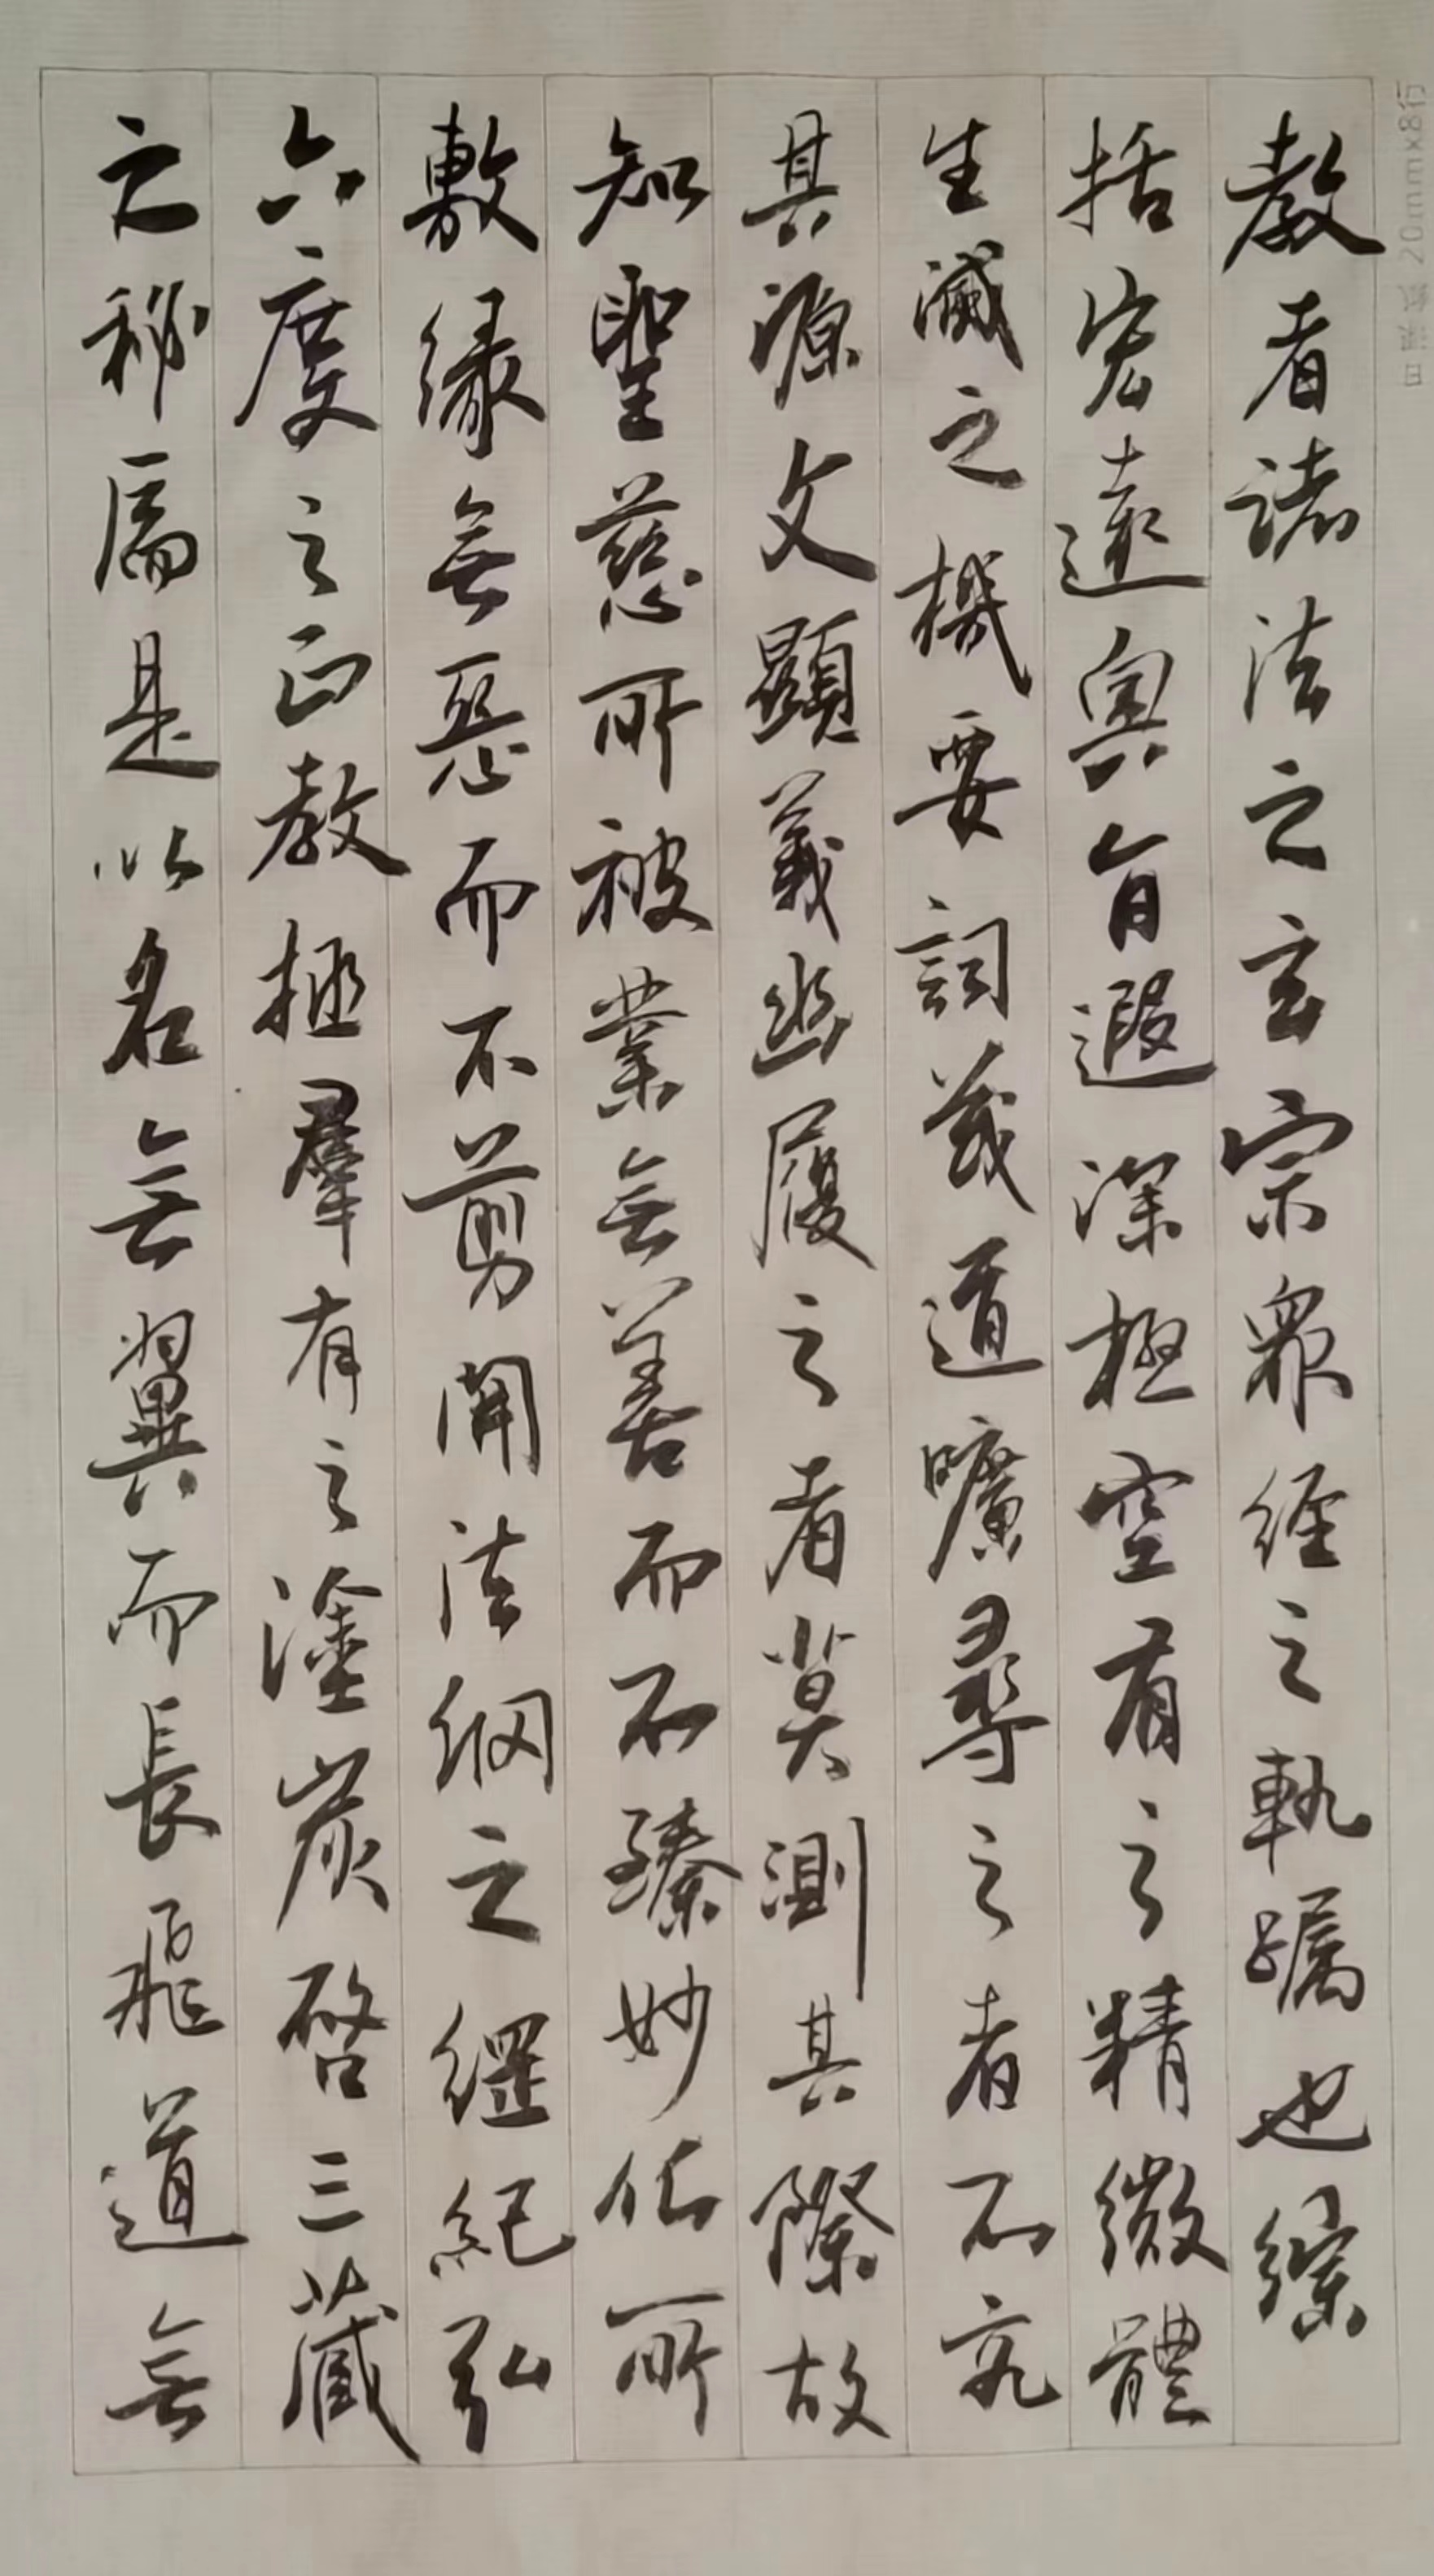 教者諸法之玄宗衆經之軌躅也綜
括宏遠奧旨遐深極空有之精微體
生滅之機要詞茂道曠尋之者不究
其源文顯義幽履之者莫測其際故
知聖慈所被業無善而不臻妙化所
敷緣無惡而不翦開法網之綱紀弘
六度之正教拯羣有之塗炭啓三藏
之秘扃是以名無翼而長飛道無
20mm×8行